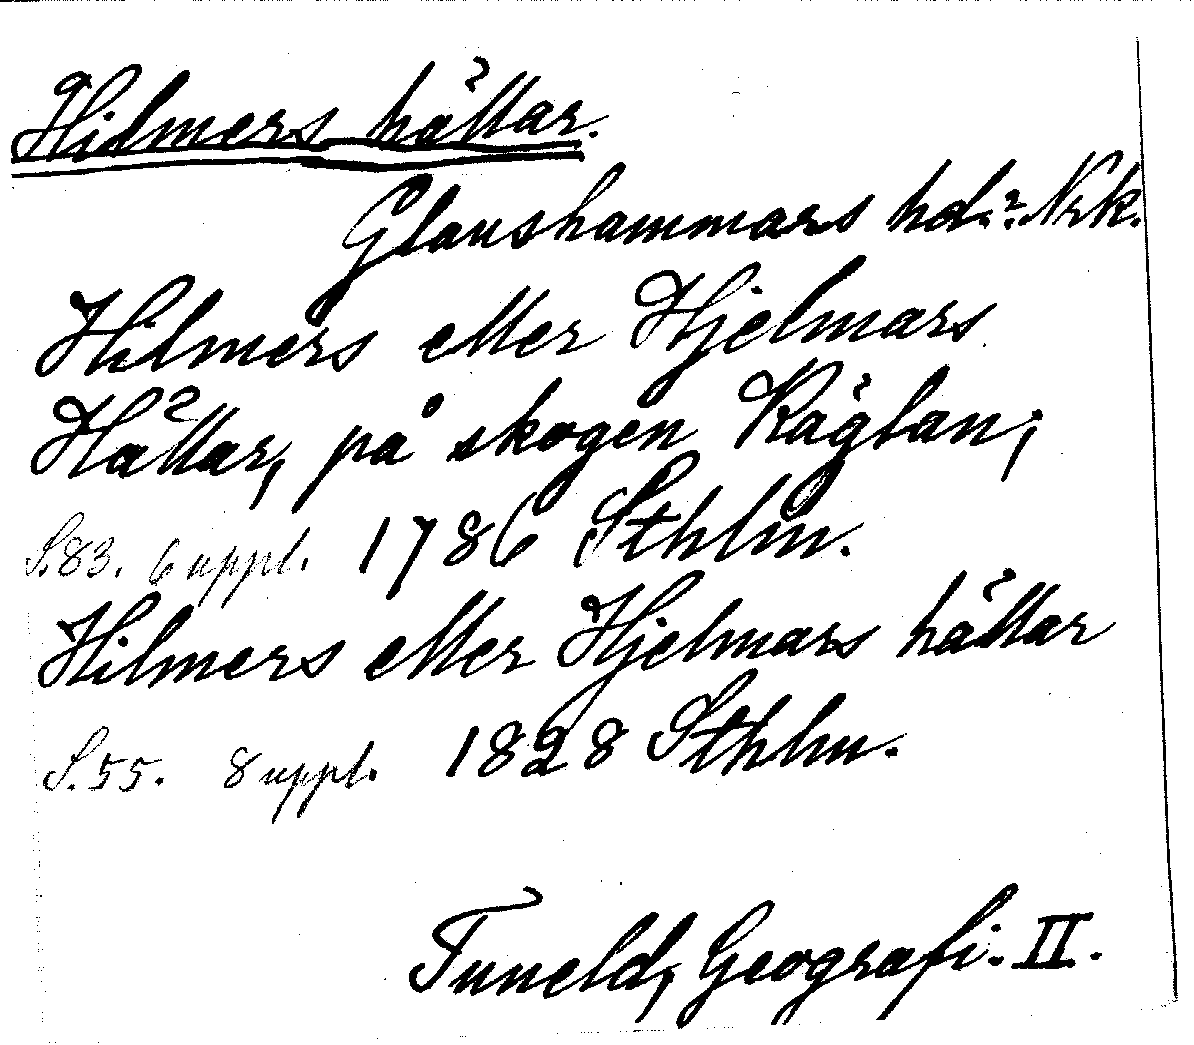 Hilmers hättar.
Glanshammars hd.? Nrk.
Hilmers eller Hjelmars
Hättar, på skogen Käglan;
S. 83. 6 uppl. 1786 Sthlm.
Hilmers eller Hjelmars hättar
S. 55. 8 uppl. 1828 Sthlm.
Tuneld, Geografi. II.